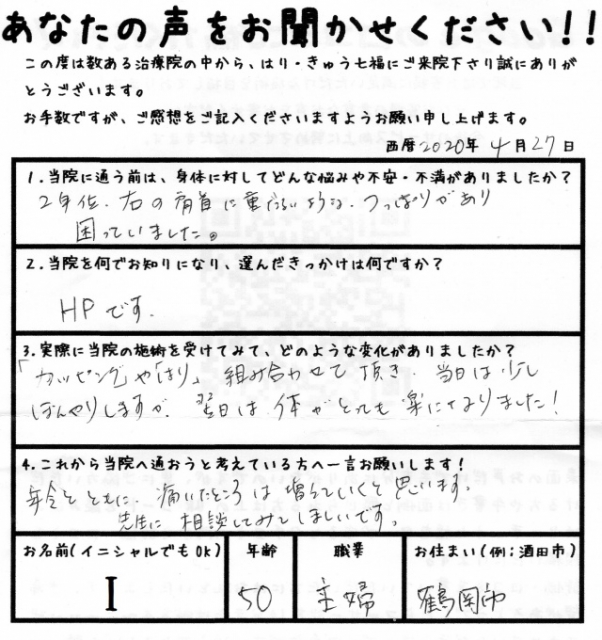 あなたの声をお聞かせください!!
この度は数ある治療院の中から、はり・きゅう七福にご来院下さり誠にありが
とうございます。
お手数ですが、ご感想をご記入くださいますようお願い申し上げます。
西暦2020年 4月27日
1.当院に通う前は、身体に対してどんな悩みや不安・不満がありましたか？
2年位、右の肩首に重だるいような、つっぱりがあり
困っていました。
2.当院を何でお知りになり、選んだきっかけは何ですか？
HPです.
3.実際に当院の施術を受けてみて、どのような変化がありましたか？
「カッピングや「はり」組み合わせて頂き、当日は少し
ぼんやりしますが、翌日は体がとっても楽になりました!
4.これから当院へ通おうと考えている方へ一言お願いします！
年令とともに、痛いところは増えていくと思います,
先生に相談してみてほしいです.
お名前(イニシャルでもOK) 年齢 職業 お住まい(例；酒田市)
I 50 主婦 鶴岡市